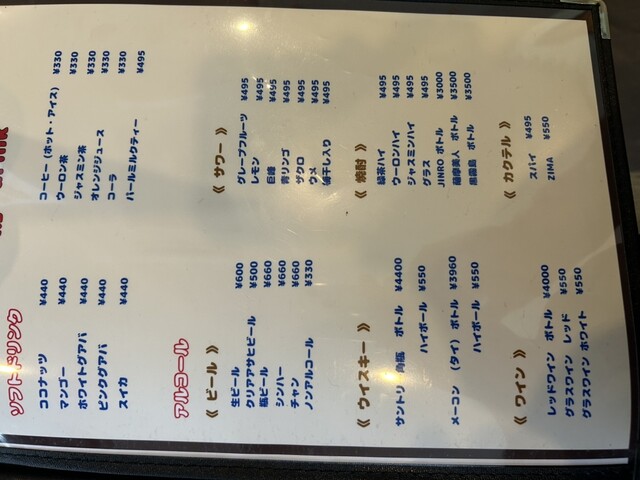 ソフトドリンク
ココナッツ ¥440
マンゴー ¥440
ホワイトグアバ ¥440
ピンクグアバ ¥440
スイカ ¥440
コーヒー (ホット・アイス) ¥330
ウーロン茶 ¥330
ジャスミン茶 ¥330
オレンジジュース ¥330
コーラ ¥330
パールミルクティー ¥495
アルコール
《 ビール 》
生ビール ¥600
クリアアサヒビール ¥500
瓶ビール ¥660
シンハー ¥660
チャン ¥660
ノンアルコール ¥330
《 サワー 》
グレープフルーツ ¥495
レモン ¥495
巨峰 ¥495
青リンゴ ¥495
ザクロ ¥495
ウメ ¥495
梅干し入り ¥495
《 ウイスキー 》
サントリー 角瓶 ボトル ¥4400
ハイボール ¥550
メーコン (タイ) ボトル ¥3960
ハイボール ¥550
《 焼酎 》
緑茶ハイ ¥495
ウーロンハイ ¥495
ジャスミンハイ ¥495
グラス ¥495
JINRO ボトル ¥3000
薩摩美人 ボトル ¥3500
黒霧島 ボトル ¥3500
《 ワイン 》
レッドワイン ボトル ¥4000
グラスワイン レッド ¥550
グラスワイン ホワイト ¥550
《 カクテル 》
スハイ ¥495
ZIMA ¥550